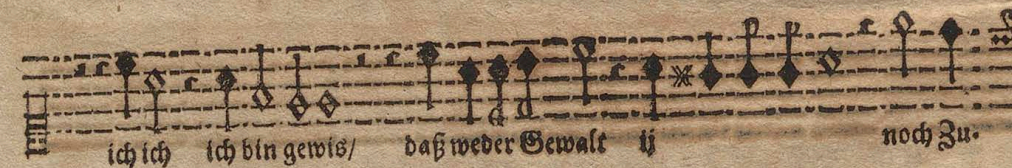 ich ich ich bin gewis/ daß weder Gewalt ij noch Zu.